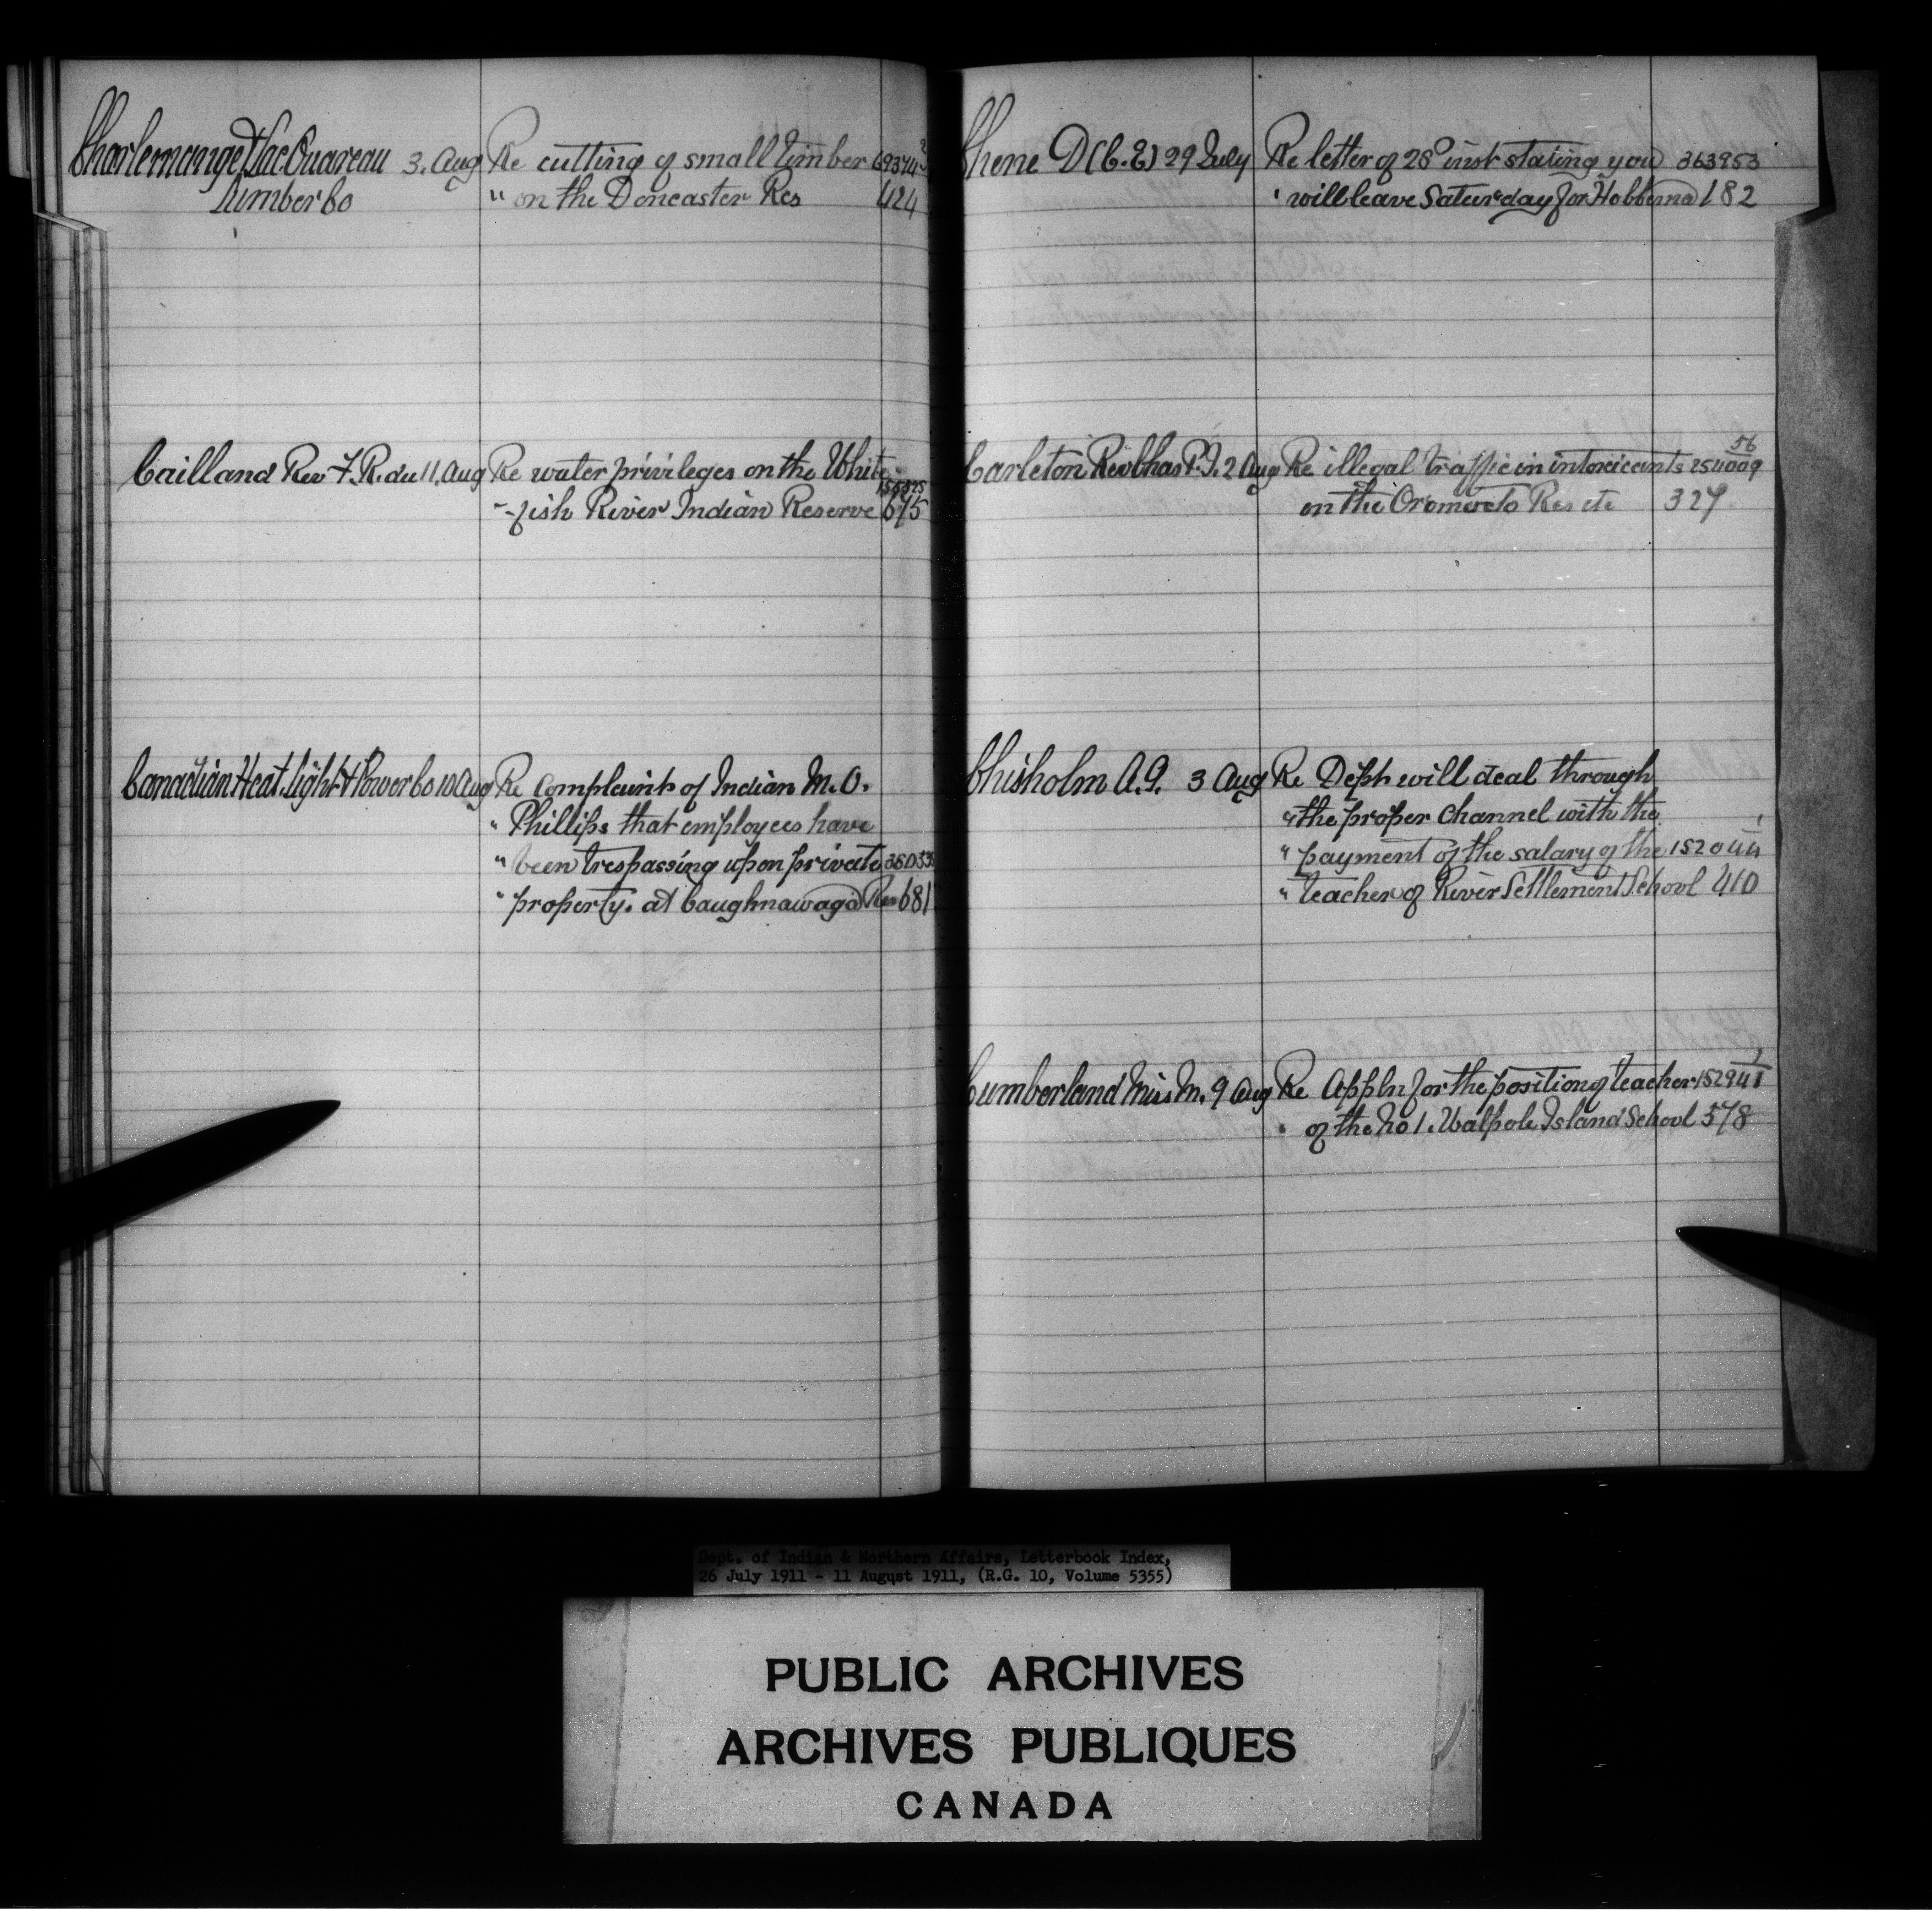 Charlemange & Lac Ouareau 3. Aug Re cutting of small timber 69374
Lumber Co " on the Doncaster Res 424
Cailland Rev F. R. du 11. Aug Re water privileges on the White
- fish River Indian Reserve 675
Canadian Heat. Light & Power Co 10 Aug Re Complaints of Indian M. O.
" Phillips that employees have
" been trespassing upon private
" property. at Caughnawaga Res 681
Chene D (C. E) 29 July Re letter of 28° inst stating you 363953
" will leave Saturday for Hobbema 182
Carleton Rev Chas P. J. 2 Aug Re illegal traffic in intoxicants
on the Oromocto Res etc 327
Chisholm A. G. 3 Aug Re Dept will deal through
" the proper channel with the
" payment of the salary of the 152044
" teacher of River Settlement School 410
Cumberland Miss M. 9 Aug Re Appln for the position of teacher
" of the No 1. Walpole Island School 578
Dept. of Indian & Northern Affairs, Letterbook Index,
26 July 1911 - 11 August 1911, (R.G. 10, Volume 5355)
PUBLIC ARCHIVES
ARCHIVES PUBLIQUES
CANADA